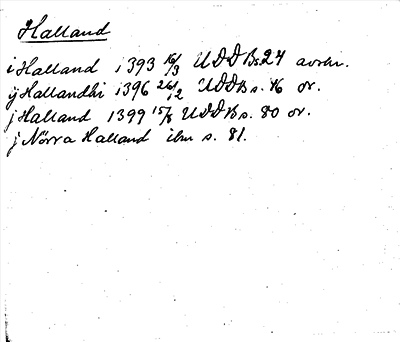 Halland
i Halland 1393 16/3 UDDB s. 24 avskr.
ij Hallandhi 1396 26/12 UDDB s. 46 or.
j Halland 1399 15/8 UDDB s. 80 or.
j Nörra Halland ibm s. 81.